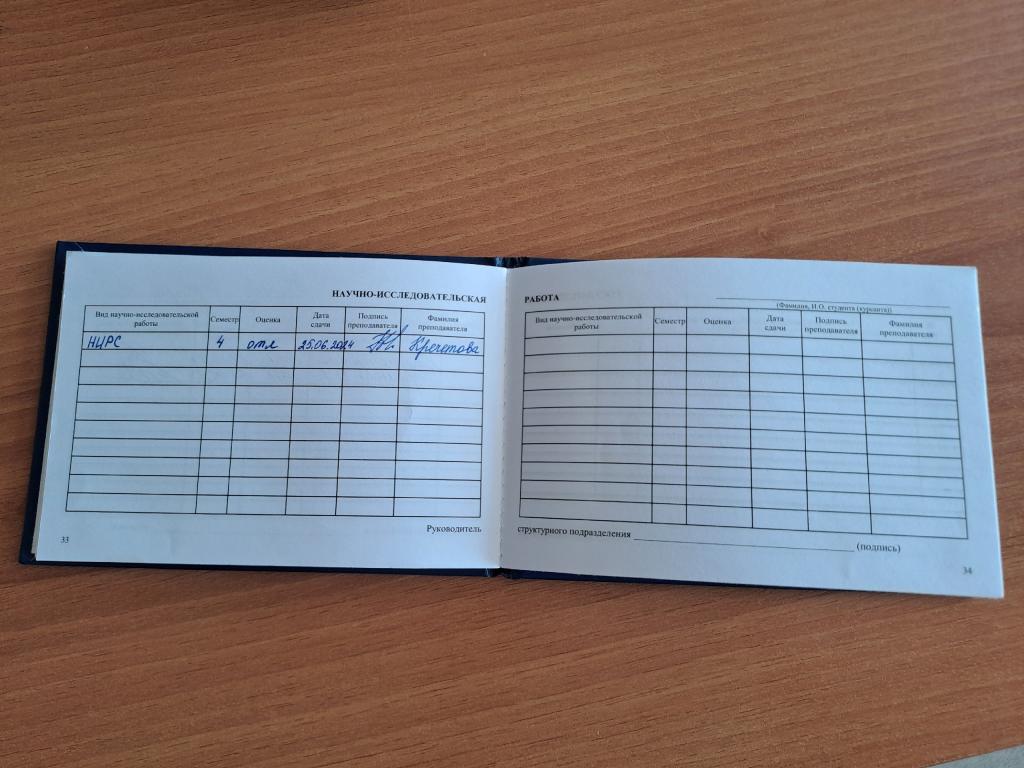 НАУЧНО-ИССЛЕДОВАТЕЛЬСКАЯ
Вид научно-исследовательской работы Семестр Оценка Дата сдачи Подпись преподавателя Фамилия преподавателя
НИРС 4 отл 25.06.2024 Кречетова
Руководитель
33
РАБОТА
(Фамилия, И.О. студента (курсанта))
Вид научно-исследовательской работы Семестр Оценка Дата сдачи Подпись преподавателя Фамилия преподавателя
структурного подразделения (подпись)
34